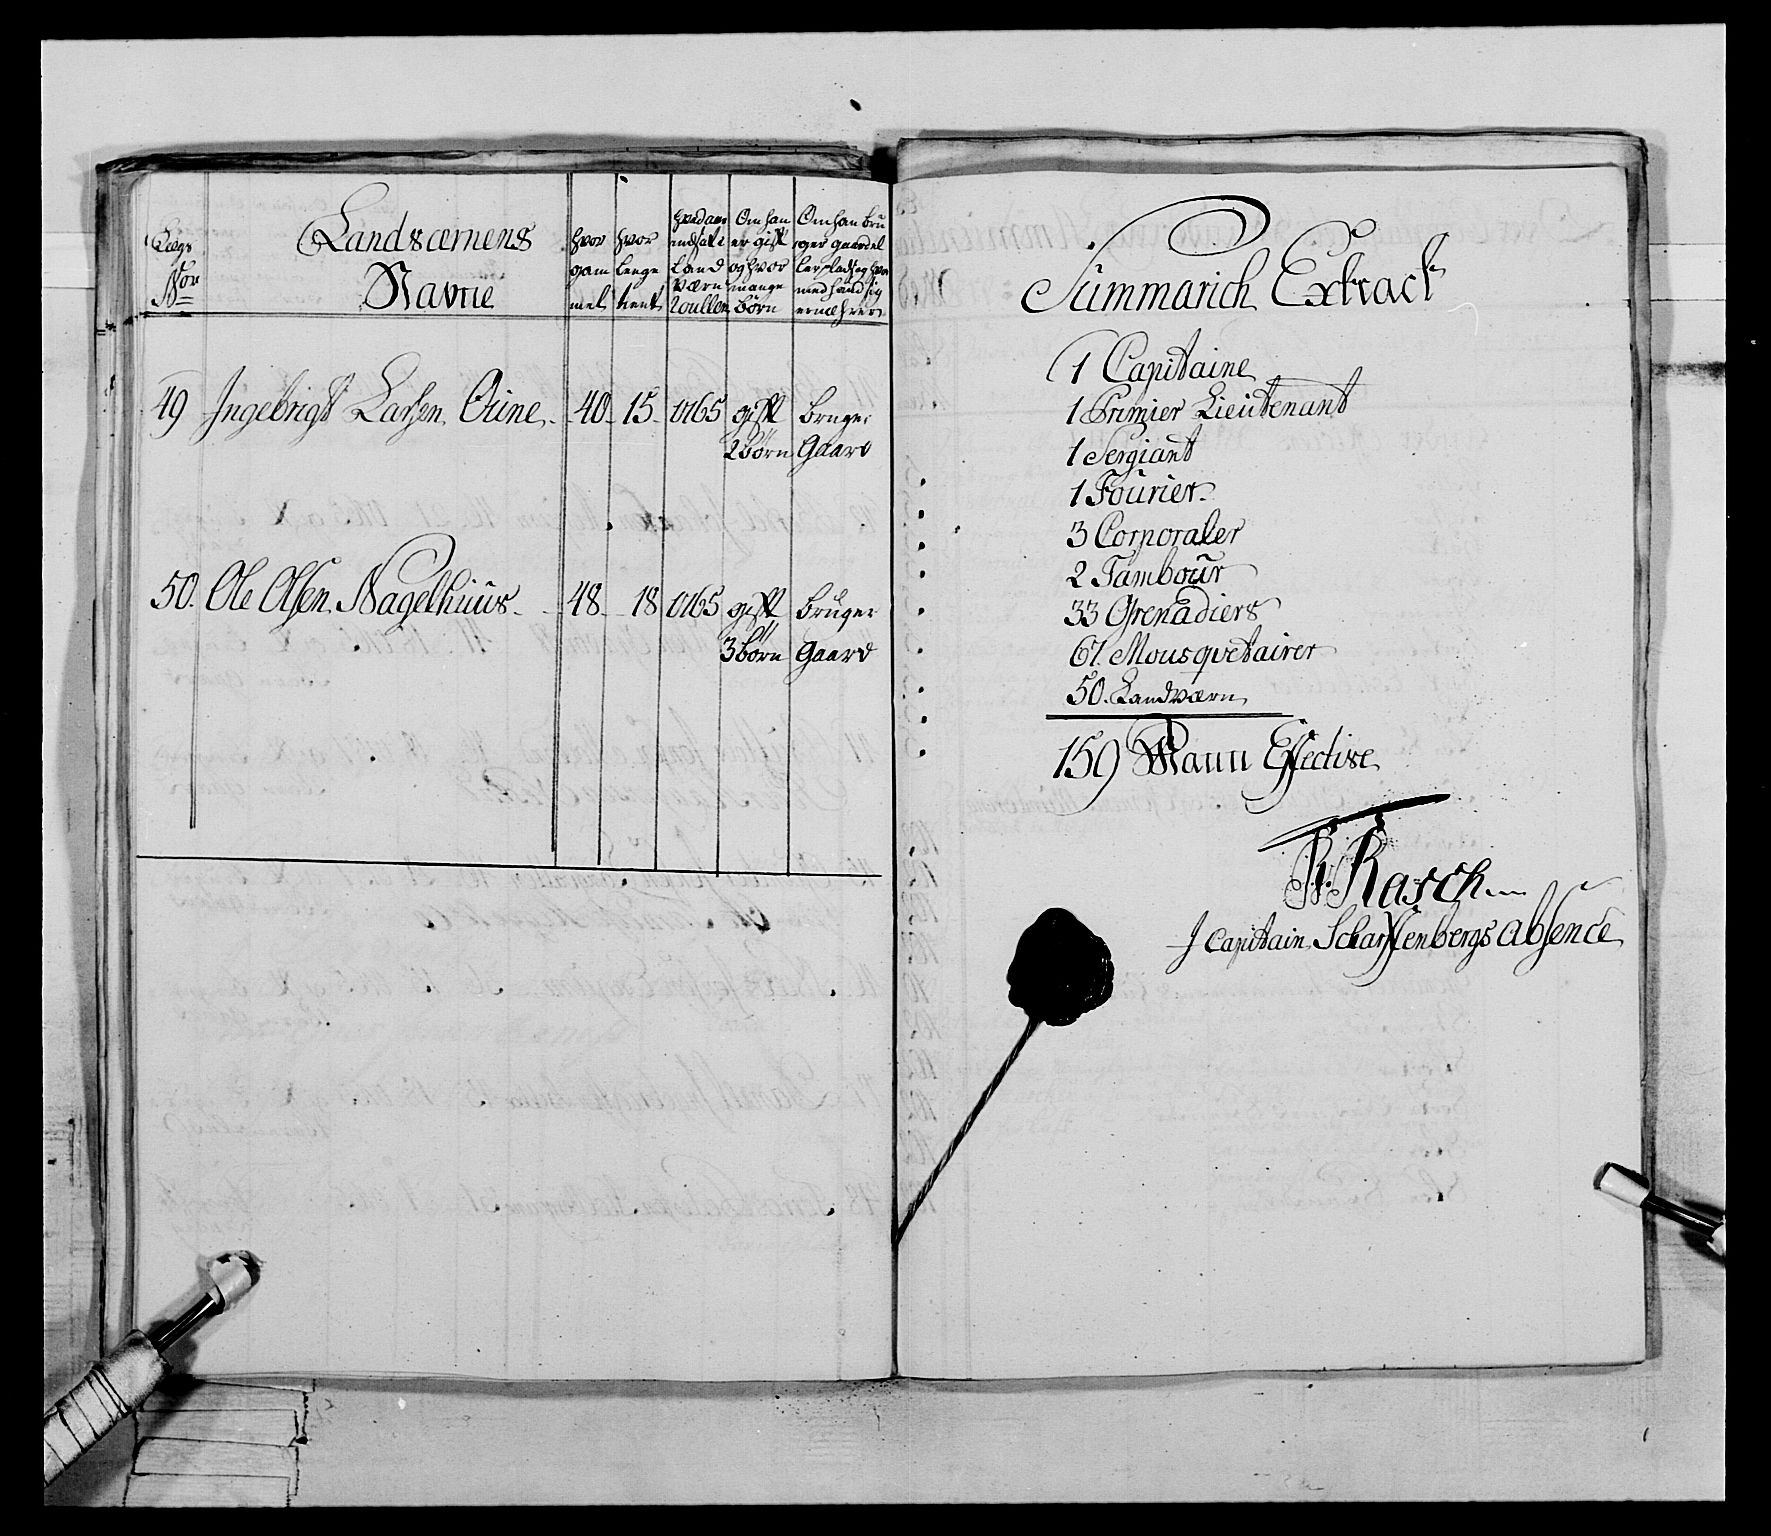 Lægs
Nor
Landværnens
Navne
hvor
gam
mel
hvor
lenge
tient
hvad aar
indsat i
Land
værn
Roullen
Om han
er gift
og hvor
mange
børn
Om han bru
ger gaard el
ler plads og hvor
med hand sig
ernæhrer
49 Ingebrigt Larsen Oüne 40 15 1765 gift bruger
2 børn Gaard
50. Ole Olsen Nagelhuüs 48 18 1765 gift brüger
3 børn Gaard
Summarich Extract
1 Capitaine
1 Premier Lieutenant
1 Sergiant
1 Fourier
3 Corporaler
2 Tambour
33 Grenadiers
67. Mousqvetairer
50. Landværn
159 Mann Effective
Rasch
I Capitain Scharffenbergs absence